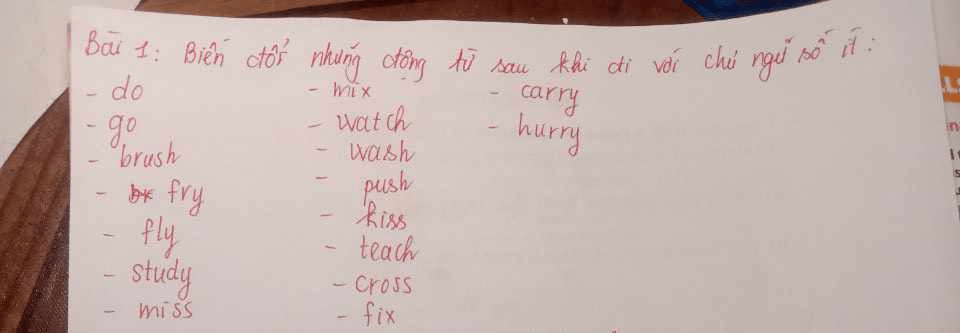 Bài 1: Biến đổi những động từ sau khi đi với chủ ngữ số ít:
- do
- go
- brush
- fry
- fly
- study
- miss
- mix
- watch
- wash
- push
- kiss
- teach
- cross
- fix
- carry
- hurry